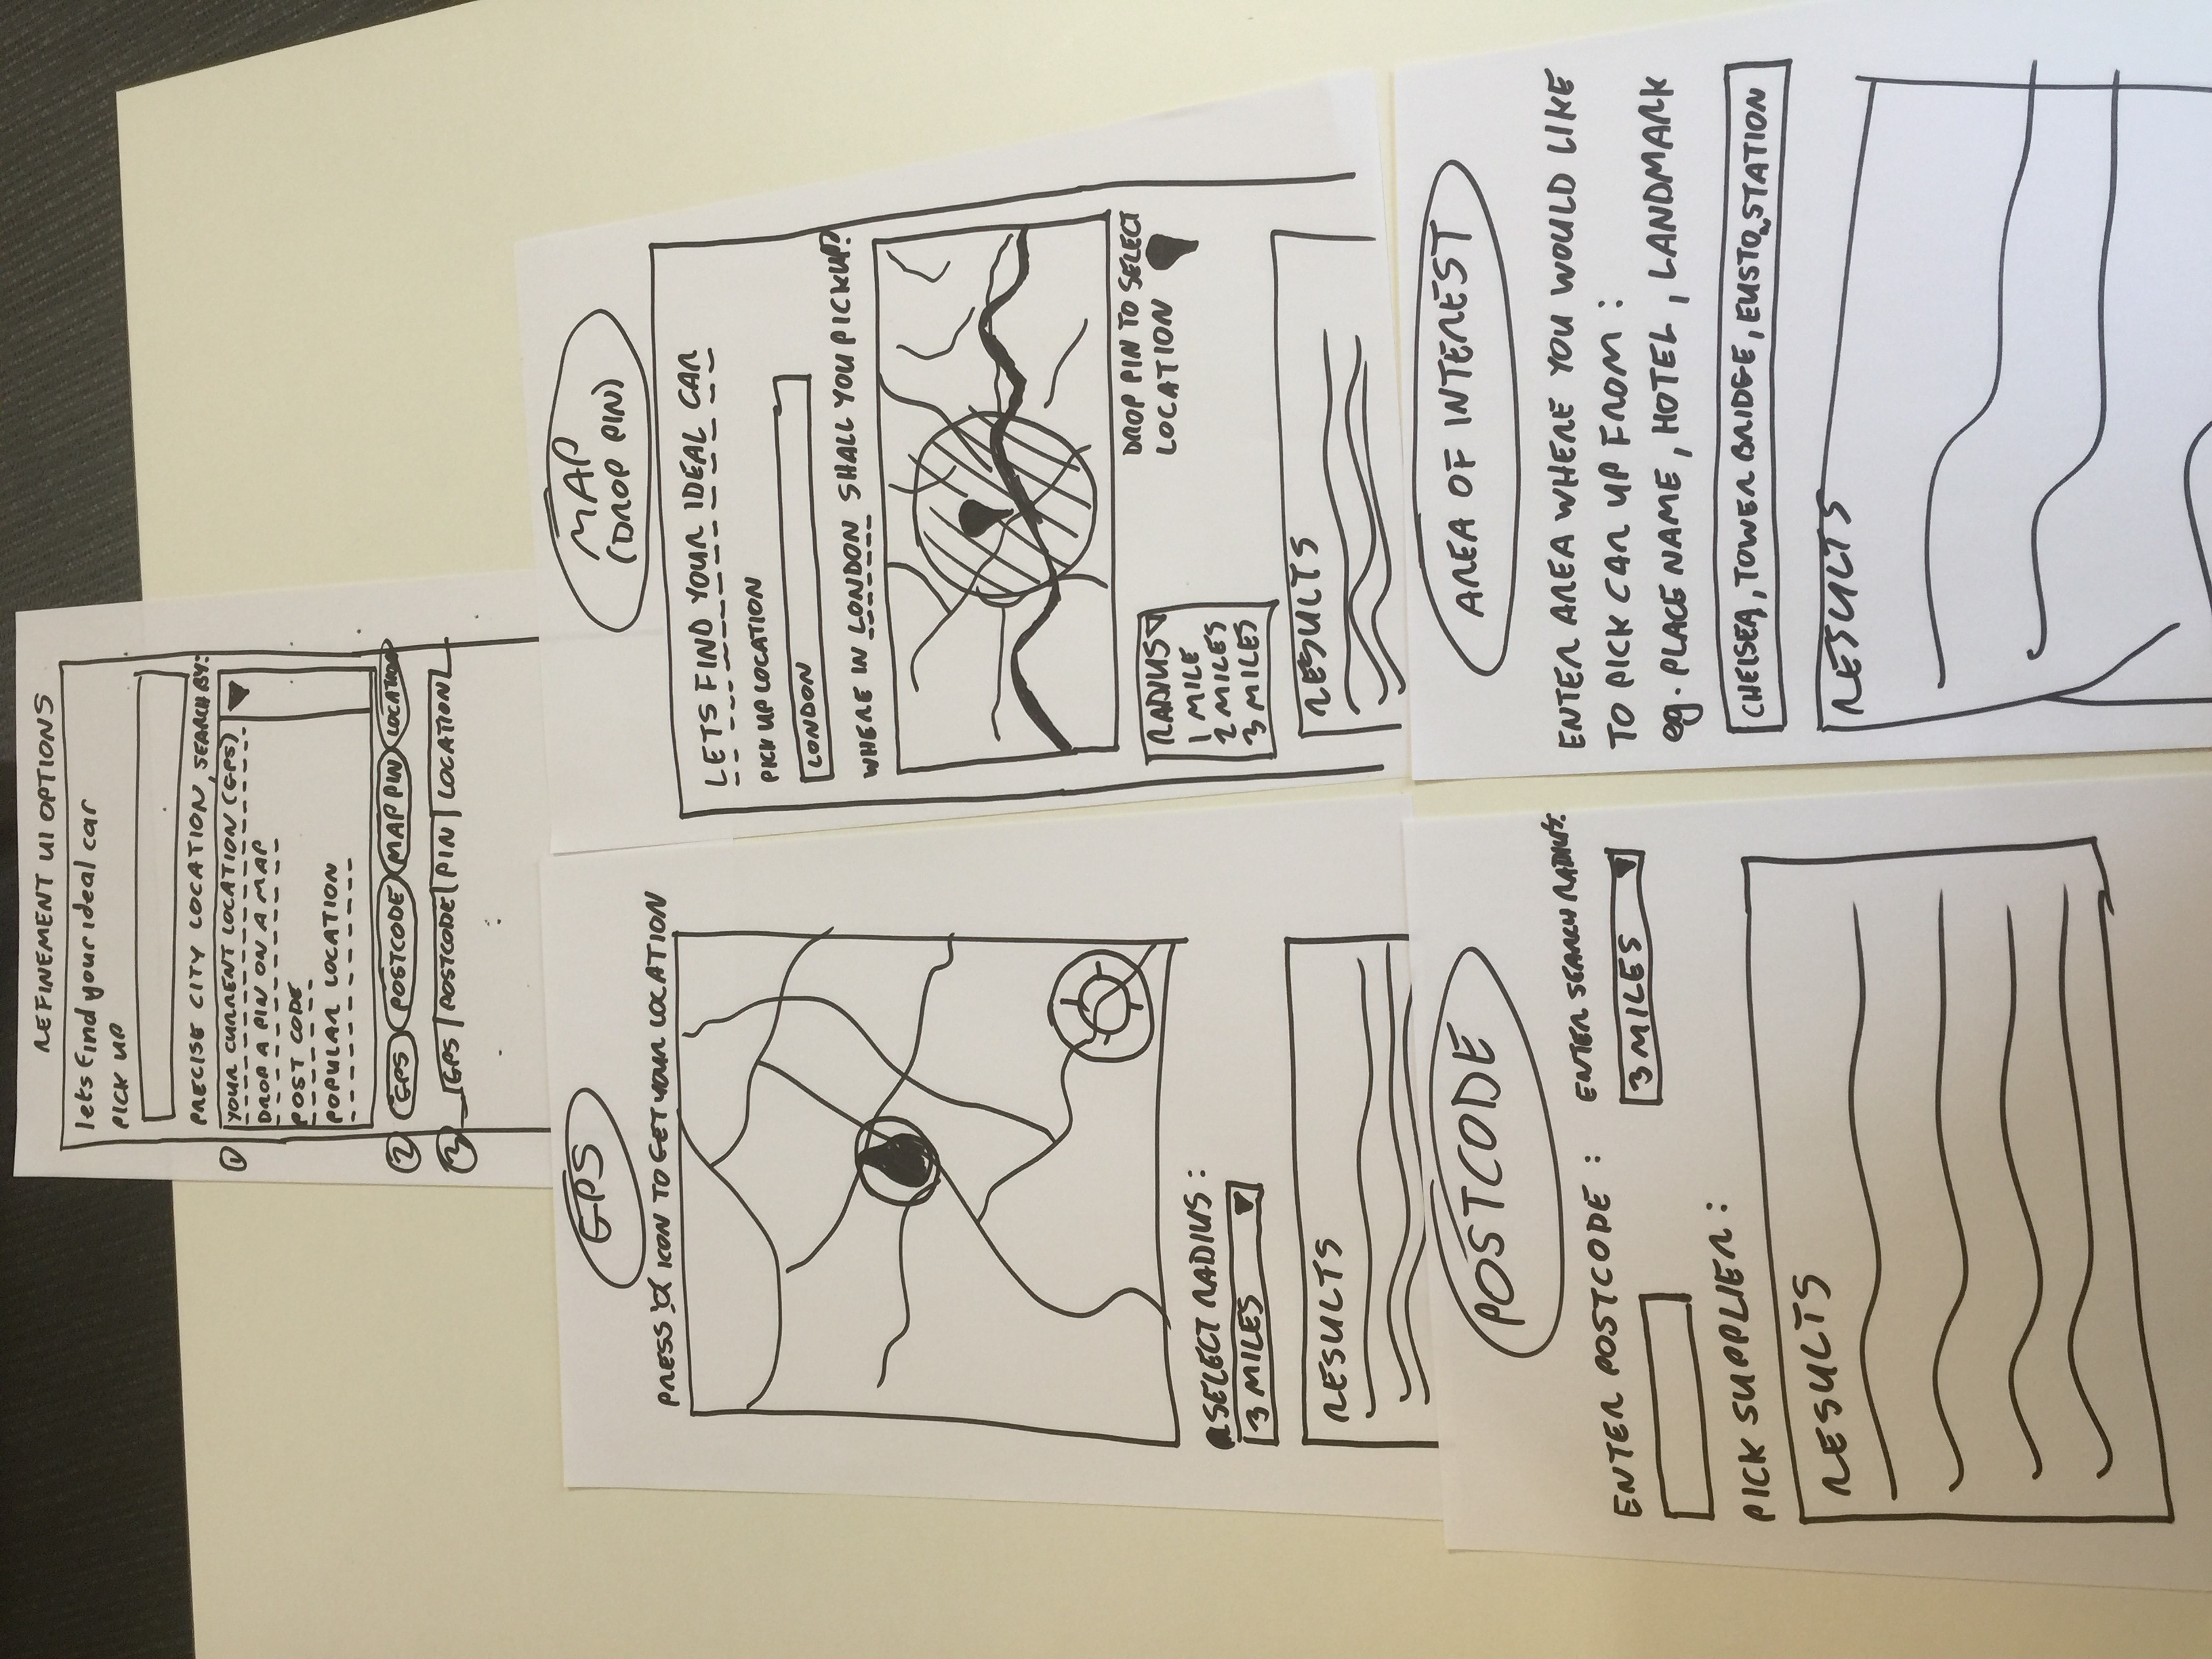 REFINEMENT UI OPTIONS
lets find your ideal car
PICK UP
PRECISE CITY LOCATION, SEARCH BY:
1 YOUR CURRENT LOCATION (GPS)
DROP A PIN ON A MAP
POST CODE
POPULAR LOCATION
2 GPS POSTCODE MAP PIN LOCATION
3 GPS POSTCODE PIN LOCATION
GPS
PRESS ICON TO GET YOUR LOCATION
SELECT RADIUS:
3 MILES
RESULTS
MAP
(DROP PIN)
LETS FIND YOUR IDEAL CAR
PICK UP LOCATION
LONDON
WHERE IN LONDON SHALL YOU PICKUP?
DROP PIN TO SELECT
LOCATION
RADIUS
1 MILE
2 MILES
3 MILES
RESULTS
POSTCODE
ENTER POSTCODE:
ENTER SEARCH RADIUS:
3 MILES
PICK SUPPLIER:
RESULTS
AREA OF INTEREST
ENTER AREA WHERE YOU WOULD LIKE
TO PICK CAR UP FROM:
eg. PLACE NAME, HOTEL, LANDMARK
CHELSEA, TOWER BRIDGE, EUSTON STATION
RESULTS